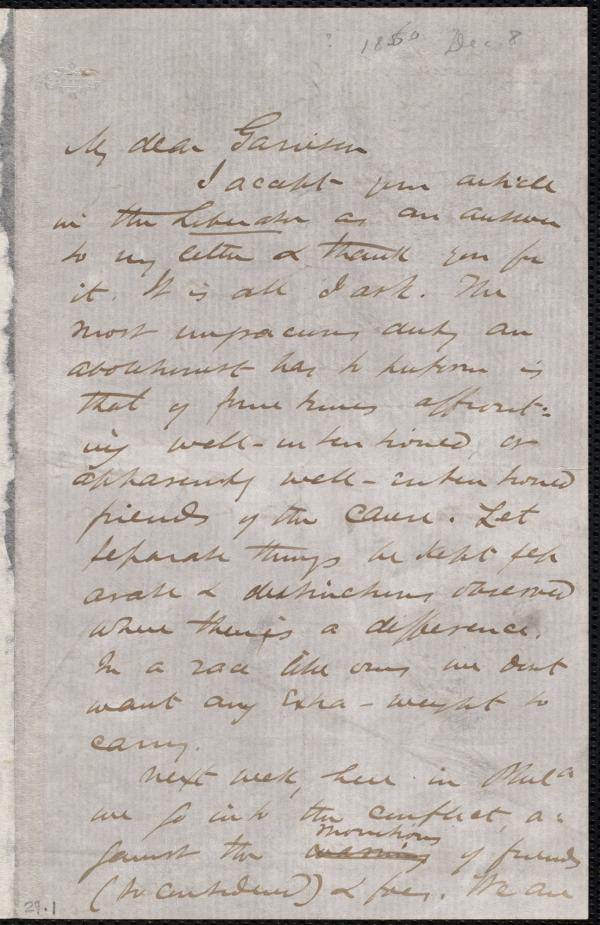 1850 Dec 8
My dear Garrison
I accept your article
in the Liberator as an answer
to my letter & thank you for
it. It is all I ask. The
most ungracious duty an
abolitionist has to perform is
that of some times affront-
ing well-intentioned, or
apparently well-intentioned
friends of the cause. Let
separate things be kept sep
arate & distinctions observed
where there is a difference.
In a race like ours we dont
want any Extra-weight to
carry.
Next week, here in Phila
we go into the conflict, a-
gainst the monitions
warning of friends
(so considered) & foes. We are
29.1